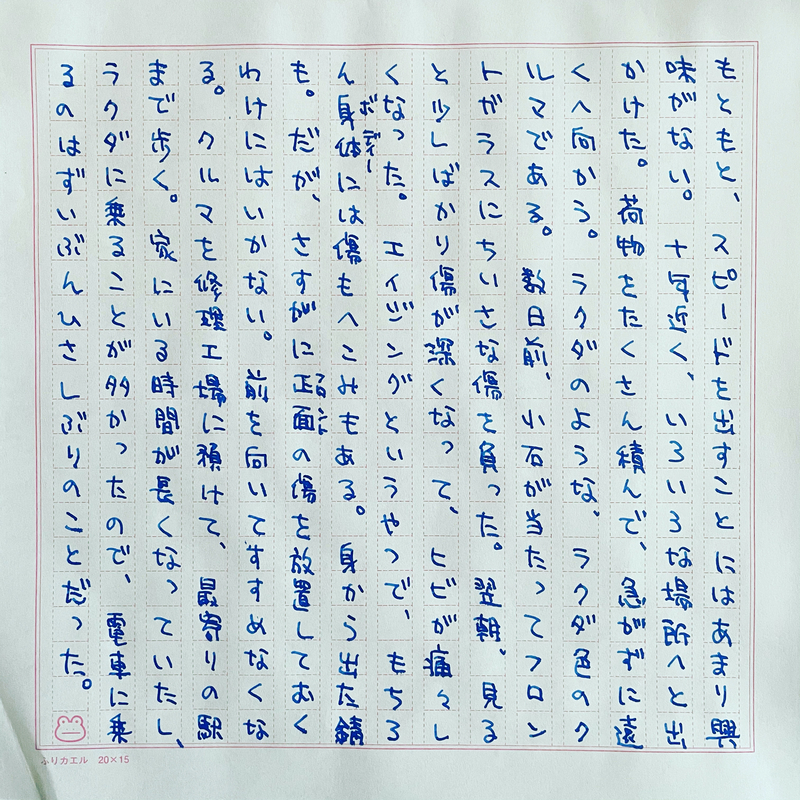 もともと、スピードを出すことにはあまり興
味がない。十年近く、いろいろな場所へと出
かけた。荷物をたくさん積んで、急がずに遠
くへ向かう。ラクダのような、ラクダ色のク
ルマである。数日前、小石が当たってフロン
トガラスにちいさな傷を負った。翌朝、見る
と少しばかり傷が深くなって、ヒビが痛々し
くなった。エイジングというやつで、もちろ
ん身体には傷もへこみもある。身から出た錆
ボディー
も。だが、さすがに正面の傷を放置しておく
わけにはいかない。前を向いてすすめなくな
る。クルマを修理工場に預けて、最寄りの駅
まで歩く。家にいる時間が長くなっていたし、
ラクダに乗ることが多かったので、電車に乗
るのはずいぶんひさしぶりのことだった。
ふりカエル 20×15